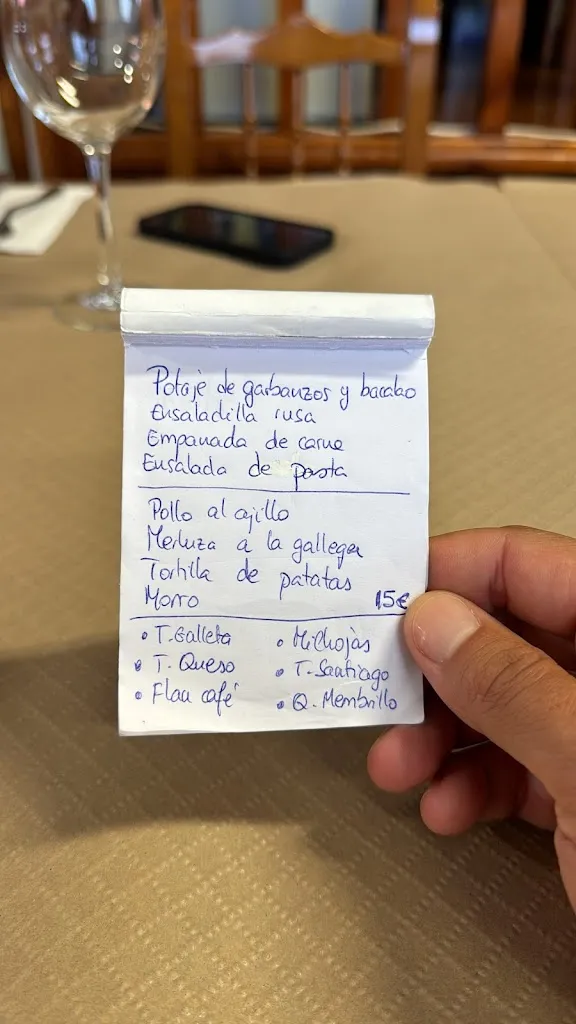 Potaje de garbanzos y bacalao
Ensaladilla rusa
Empanada de carne
Ensalada de pasta
Pollo al ajillo
Merluza a la gallega
Tortilla de patatas
Morro 15€
• T. Galleta • Milhojas
• T. Queso • T. Santiago
• Flan café • Q. Membrillo